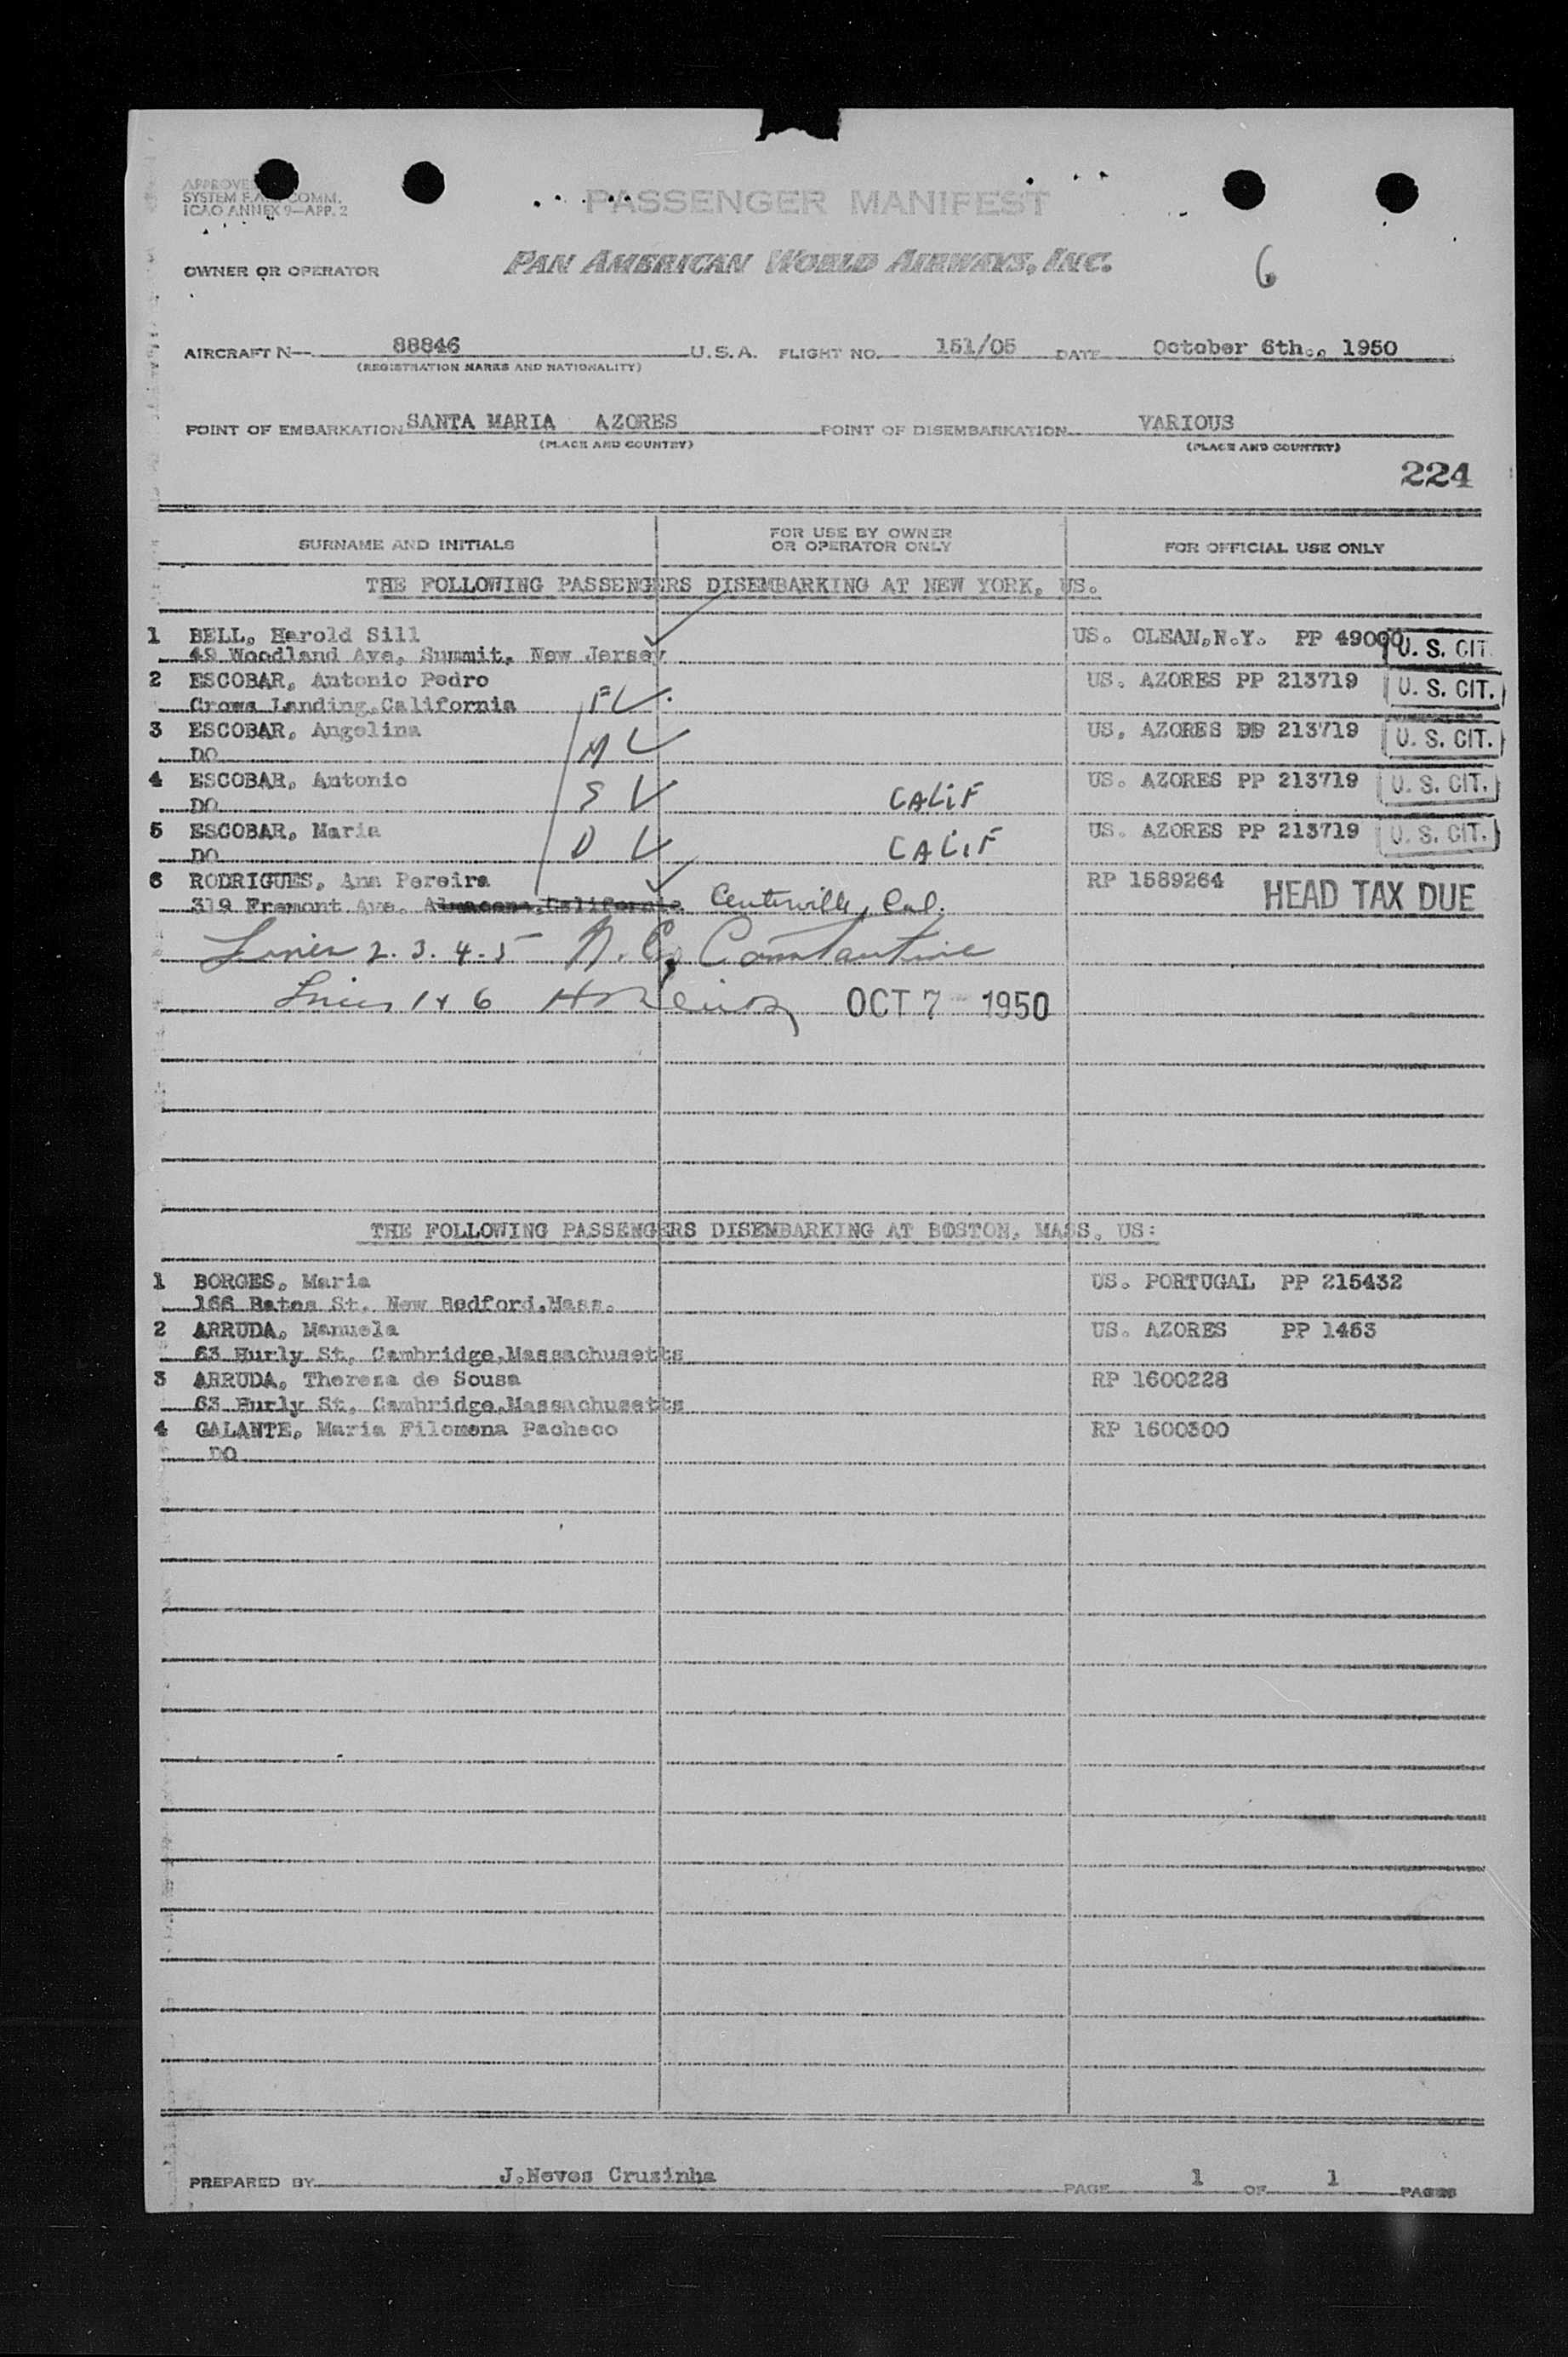 APPROVED
SYSTEM F.A.L. COMM.
ICAO ANNEX 9—APP. 2
PASSENGER MANIFEST
OWNER OR OPERATOR PAN AMERICAN WORLD AIRWAYS, INC. 6
AIRCRAFT N— 88846 U.S.A. FLIGHT NO. 151/05 DATE October 6th., 1950
(REGISTRATION MARKS AND NATIONALITY)
POINT OF EMBARKATION SANTA MARIA AZORES POINT OF DISEMBARKATION VARIOUS
(PLACE AND COUNTRY) (PLACE AND COUNTRY)
224
SURNAME AND INITIALS FOR USE BY OWNER OR OPERATOR ONLY FOR OFFICIAL USE ONLY
THE FOLLOWING PASSENGERS DISEMBARKING AT NEW YORK, US.
1 BELL, Harold Sill US. OLEAN,N.Y. PP 49000 U. S. CIT.
49 Woodland Ave, Summit, New Jersey
2 ESCOBAR, Antonio Pedro US. AZORES PP 213719 U. S. CIT.
Crows Landing,California F
3 ESCOBAR, Angelina US. AZORES PP 213719 U. S. CIT.
DO M
4 ESCOBAR, Antonio US. AZORES PP 213719 U. S. CIT.
DO S CALIF
5 ESCOBAR, Maria US. AZORES PP 213719 U. S. CIT.
DO D CALIF
6 RODRIGUES, Ana Pereira RP 1589264 HEAD TAX DUE
319 Fremont Ave, California Centerville, Cal.
Lines 2. 3. 4. 5 N. C. Constantine
Lines 1 & 6 OCT 7 1950
THE FOLLOWING PASSENGERS DISEMBARKING AT BOSTON, MASS, US:
1 BORGES, Maria US. PORTUGAL PP 215432
166 Bates St. New Bedford,Mass.
2 ARRUDA, Manuela US. AZORES PP 1463
63 Hurly St, Cambridge,Massachusetts
3 ARRUDA, Thereza de Sousa RP 1600228
63 Hurly St, Cambridge,Massachusetts
4 GALANTE, Maria Filomena Pacheco RP 1600300
DO
PREPARED BY J.Neves Crusinha PAGE 1 OF 1 PAGES